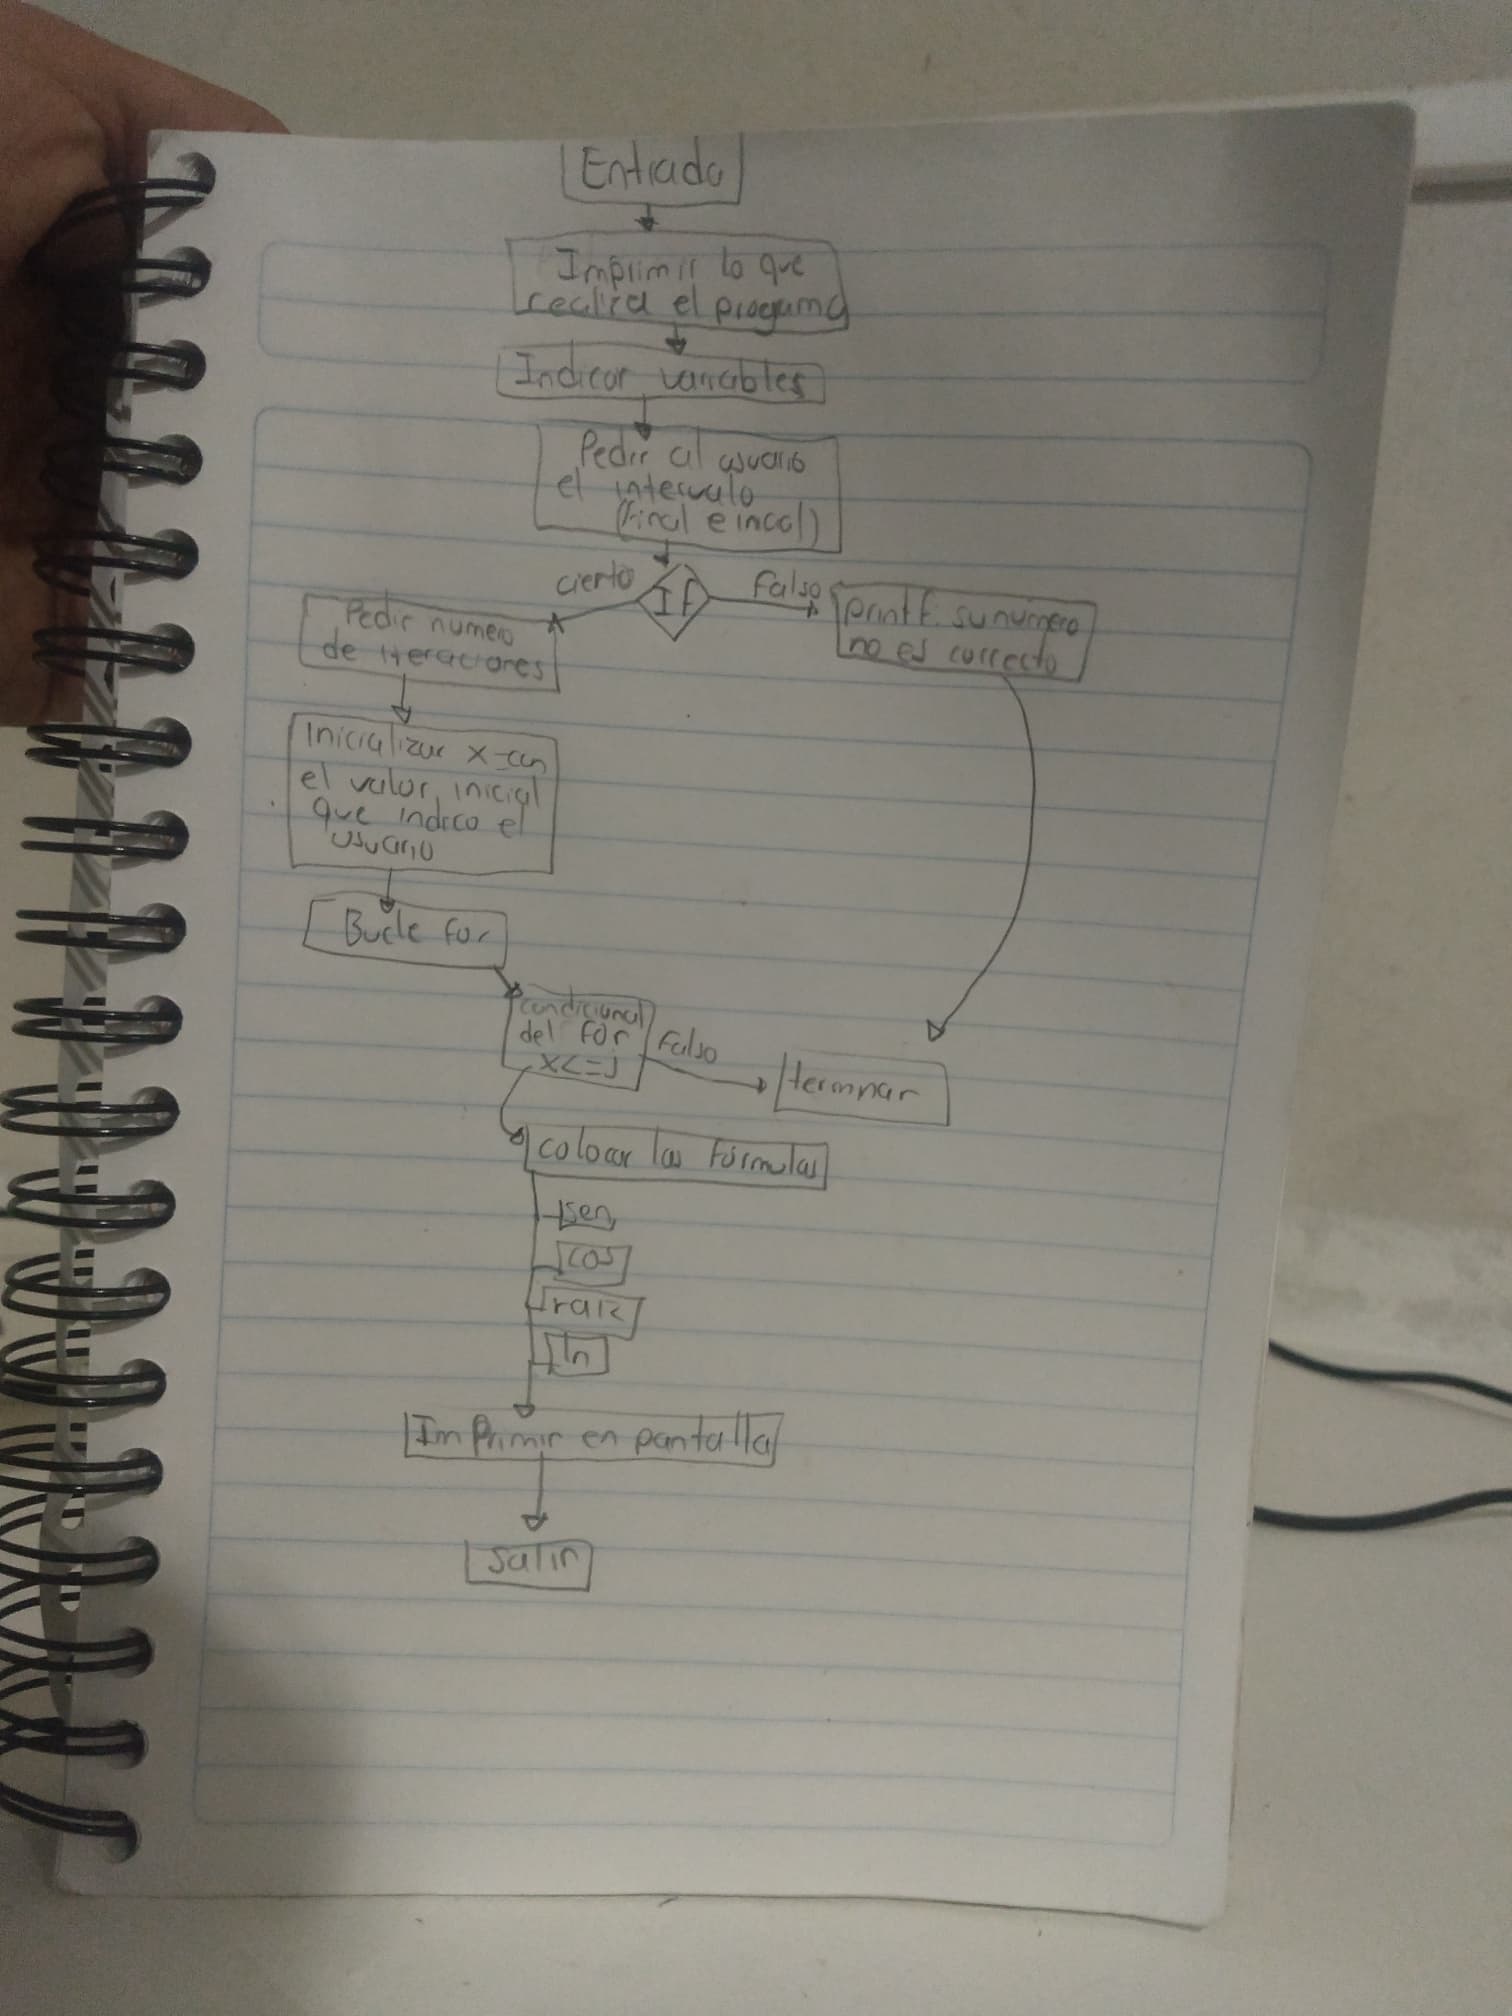 Entrada
Imprimir lo que
realiza el programa
Indicar variables
Pedir al usuario
el intervalo
(Final e incal)
cierto
IF
Falso
Pedir numero
de iteraciones
printf: su número
no es correcto
Inicializar x=con
el valor inicial
que indico el
usuario
Bucle for
condicional
del FOR
x<=J
Falso
terminar
colocar las fórmulas
sen
cos
raiz
ln
Imprimir en pantalla
salir